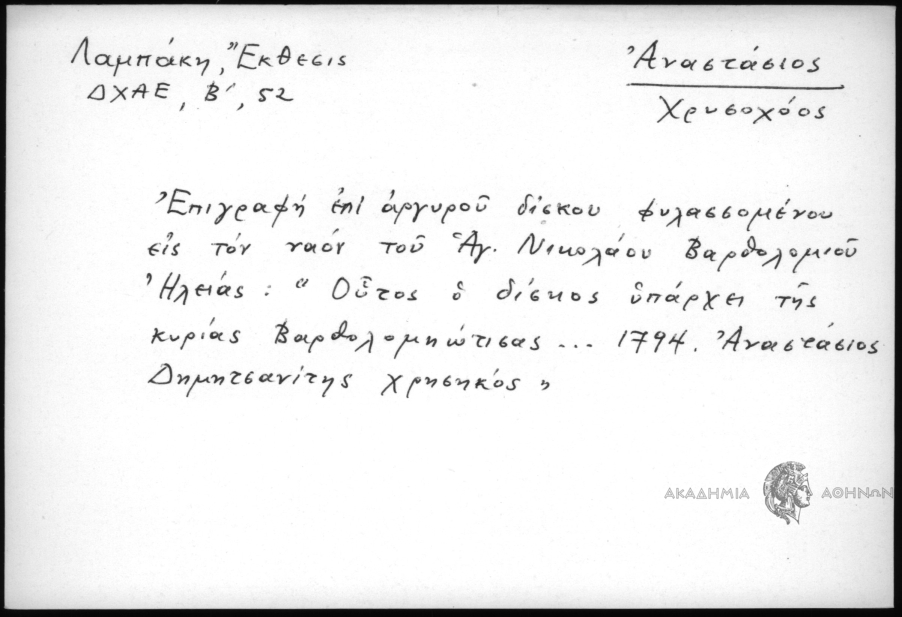 Λαμπάκη, Ἔκθεσις
ΔΧΑΕ, Β΄, 52
Ἀναστάσιος
Χρυσοχόος
Ἐπιγραφή ἐπί ἀργυροῦ δίσκου φυλασσομένου
εἰς τόν ναόν τοῦ Ἁγ. Νικολάου Βαρθολομιοῦ
Ἠλείας : " Οὗτος ὁ δίσκος ὑπάρχει τῆς
κυρίας Βαρθολομηώτισας ... 1794. Ἀναστάσιος
Δημητσανίτης χρησηκός "
ΑΚΑΔΗΜΙΑ ΑΘΗΝΩΝ